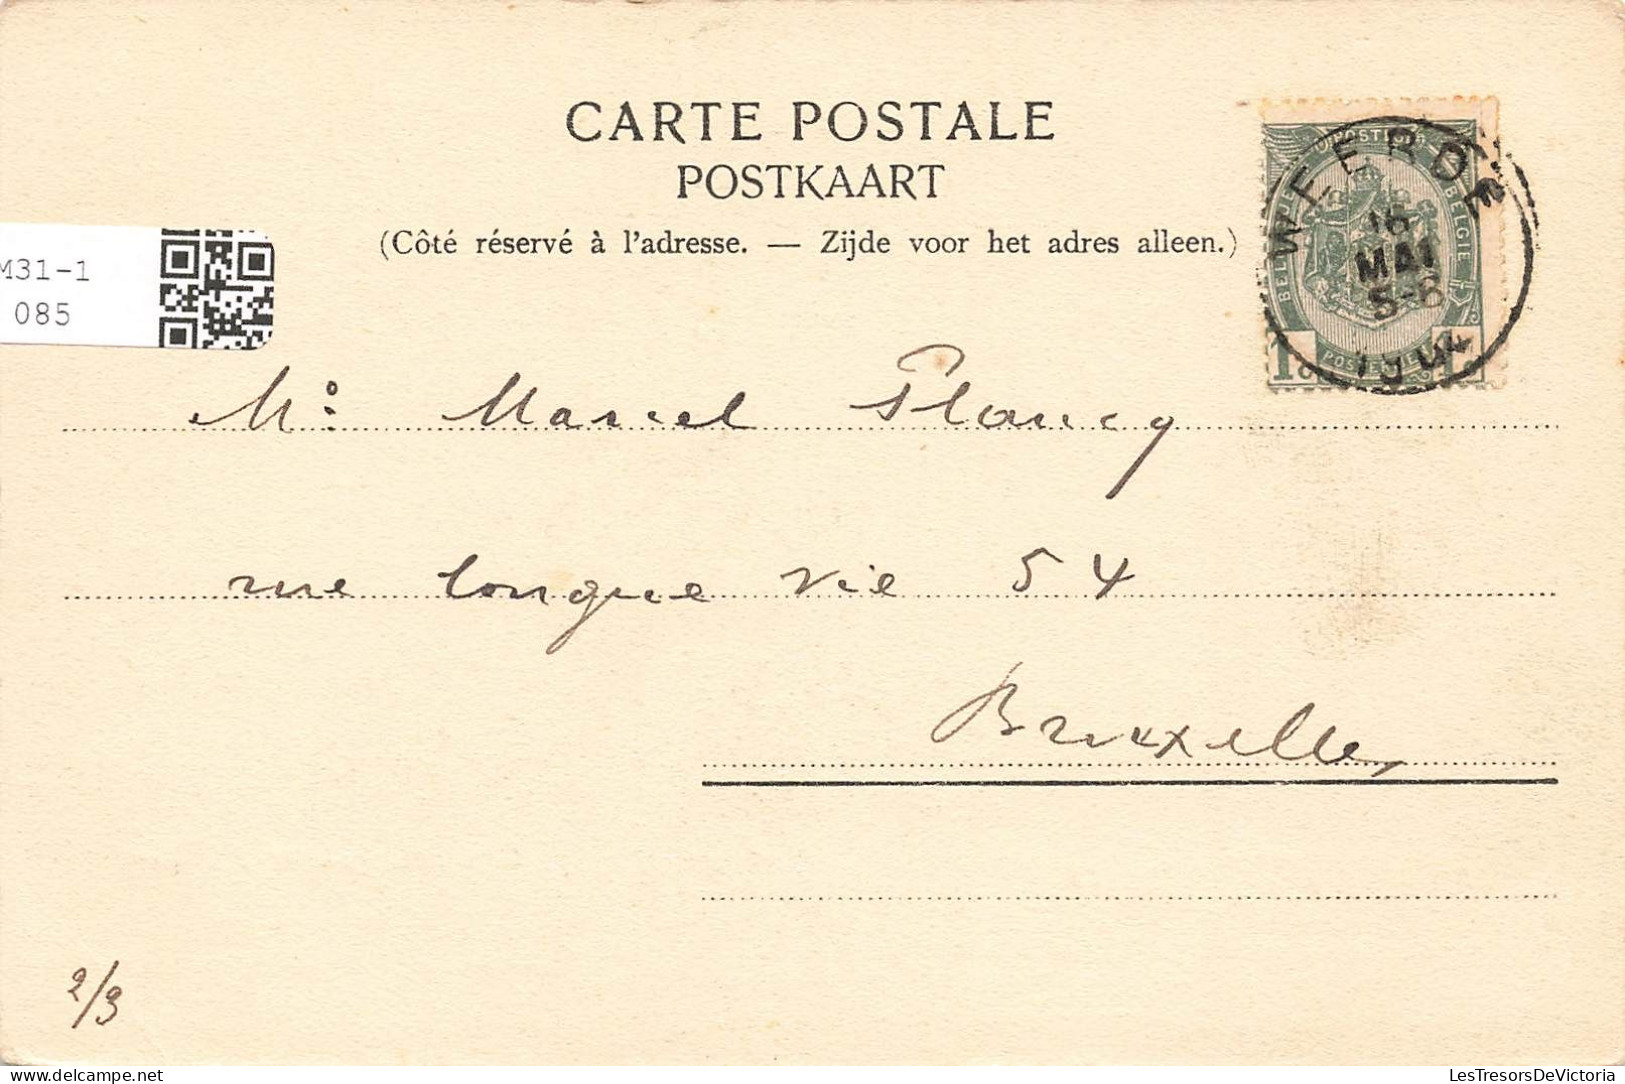 CARTE POSTALE
POSTKAART
(Côté réservé à l'adresse. — Zijde voor het adres alleen.)
WEERDE
16
MAI
5-6
1904
POSTERIJEN
BELGIE
1c
M31-1
085
Mr: Marcel Plancq
rue longue vie 54
Bruxelles
2/3
LesTresorsDeVictoria